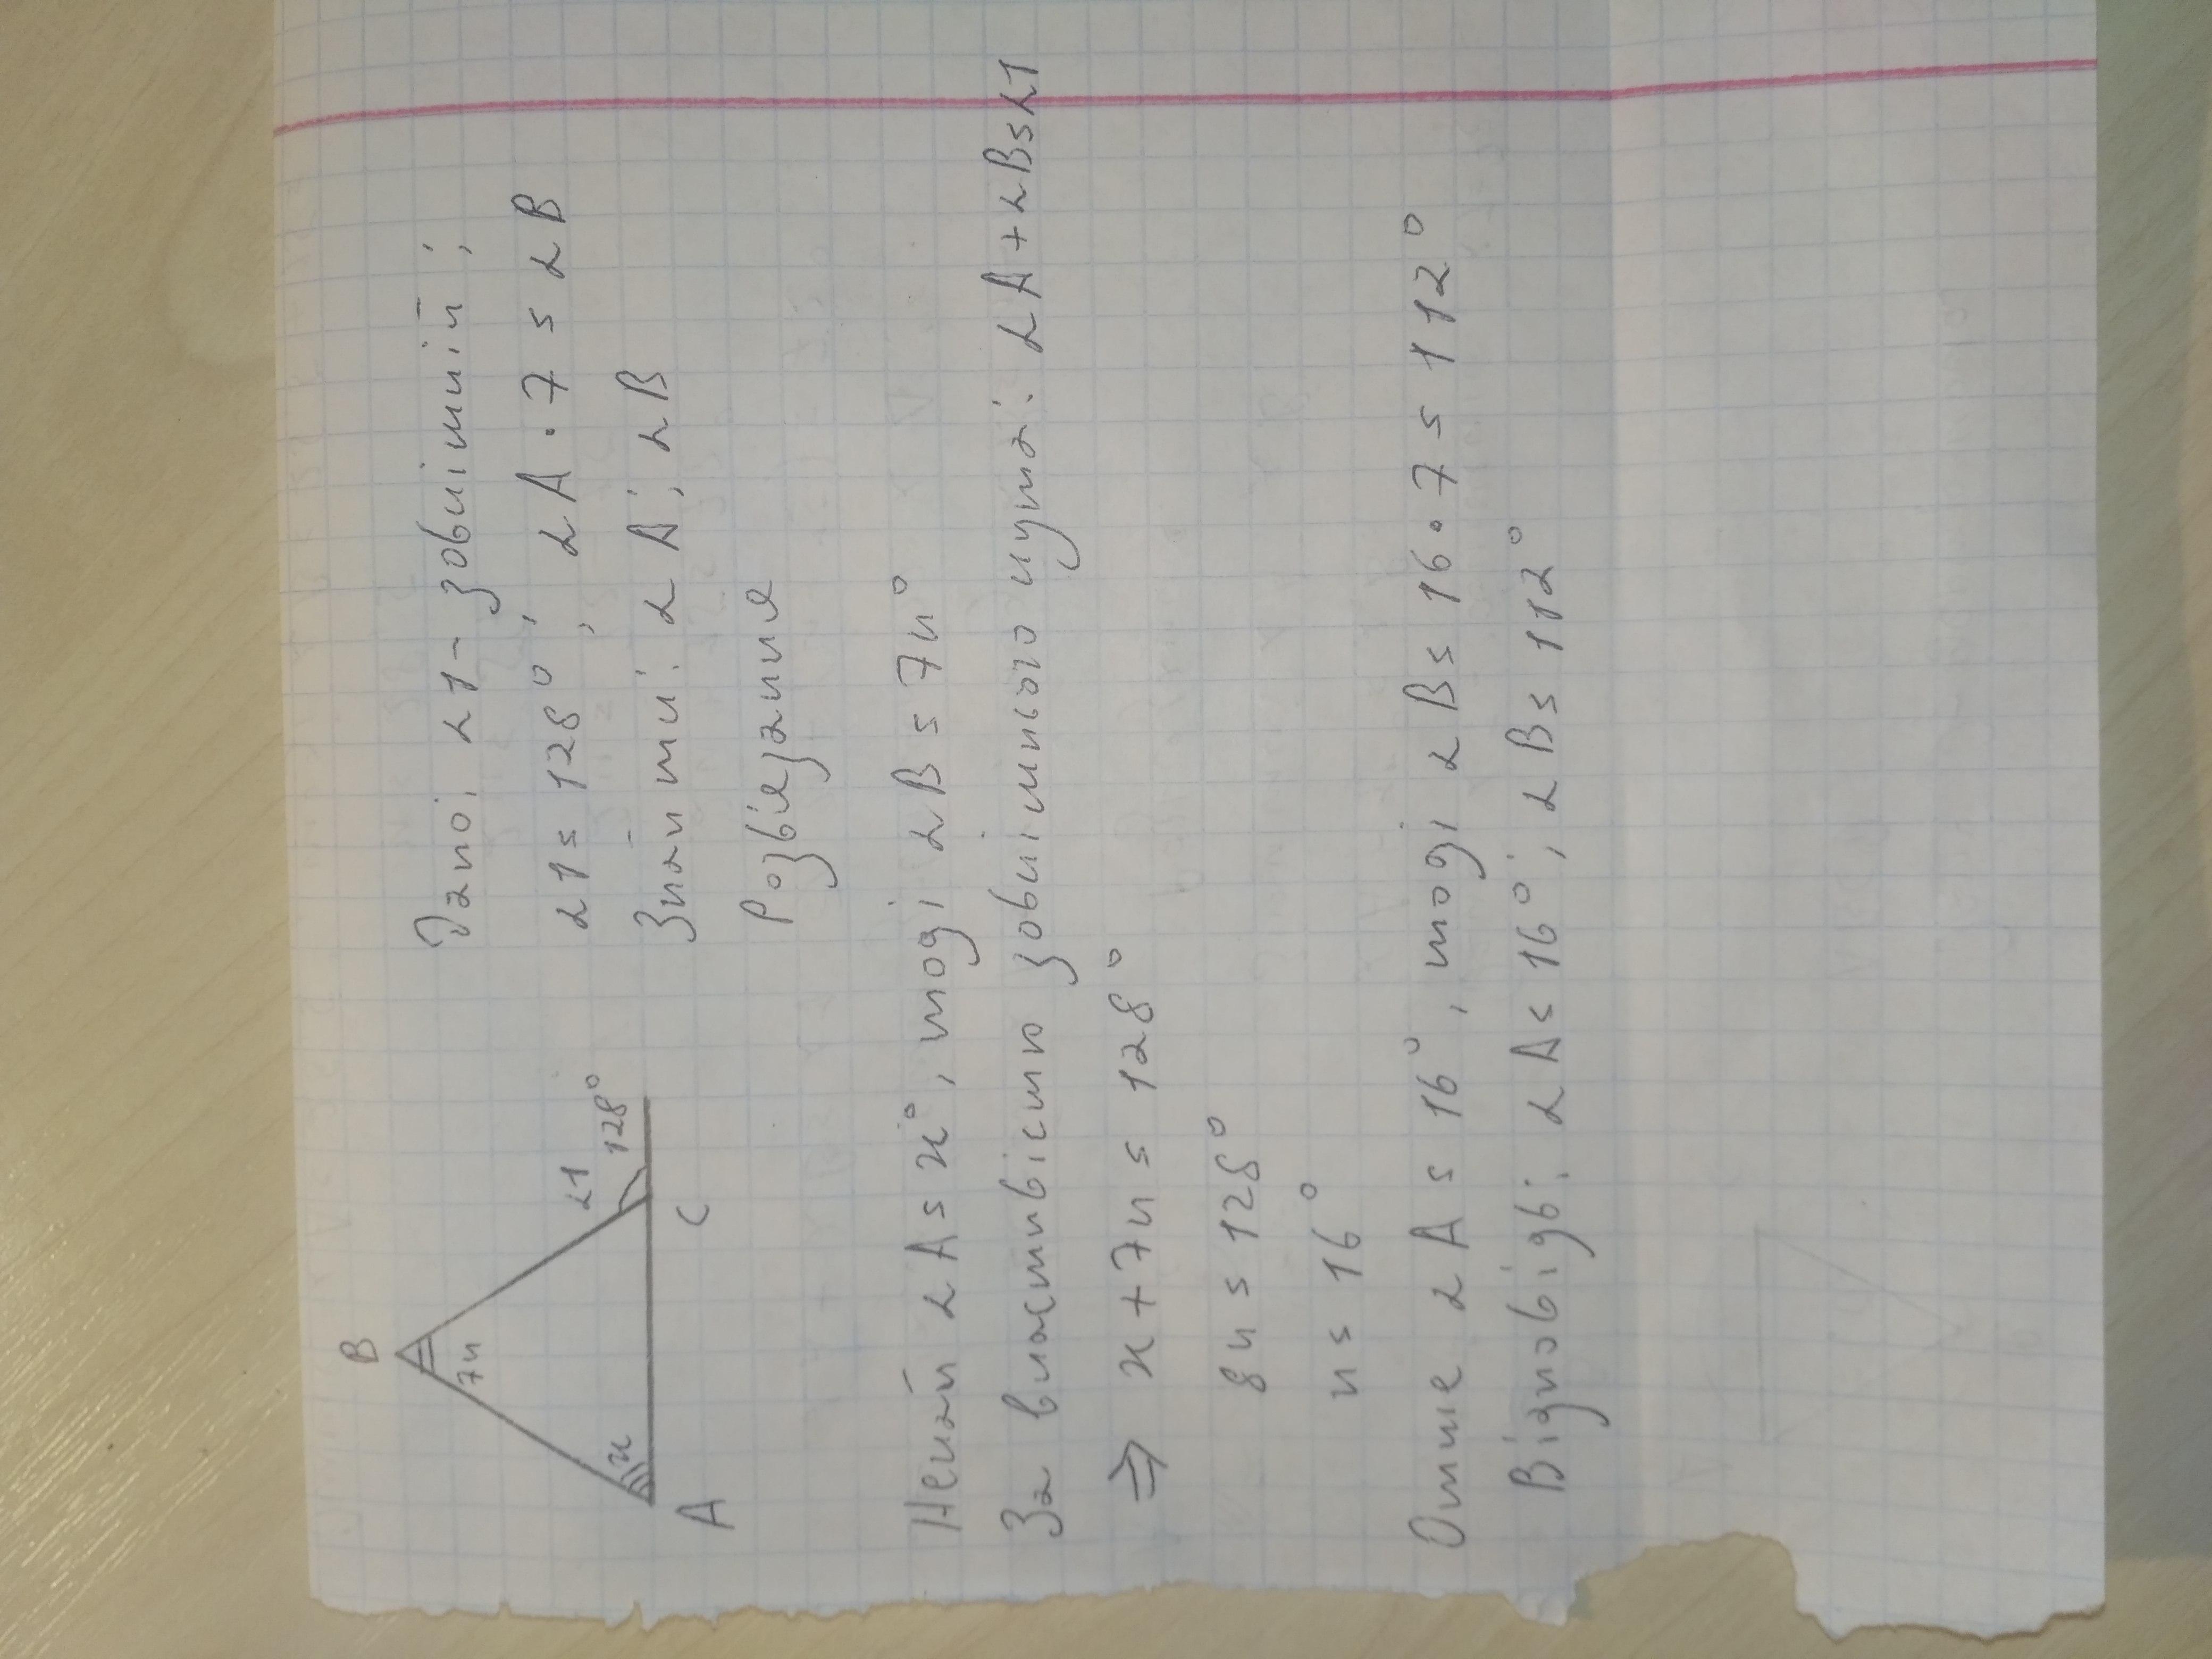 B
7x
x
A
C
∠1
128°
Дано: ∠1 - зовнішній;
∠1 = 128°; ∠A · 7 = ∠B
Знайти: ∠A; ∠B
Розв'язання
Нехай ∠A = x°, тоді ∠B = 7x°
За властивістю зовнішнього кута: ∠A + ∠B = ∠1
⇒ x + 7x = 128°
8x = 128°
x = 16°
Отже ∠A = 16°, тоді ∠B = 16 · 7 = 112°
Відповідь: ∠A = 16°; ∠B = 112°